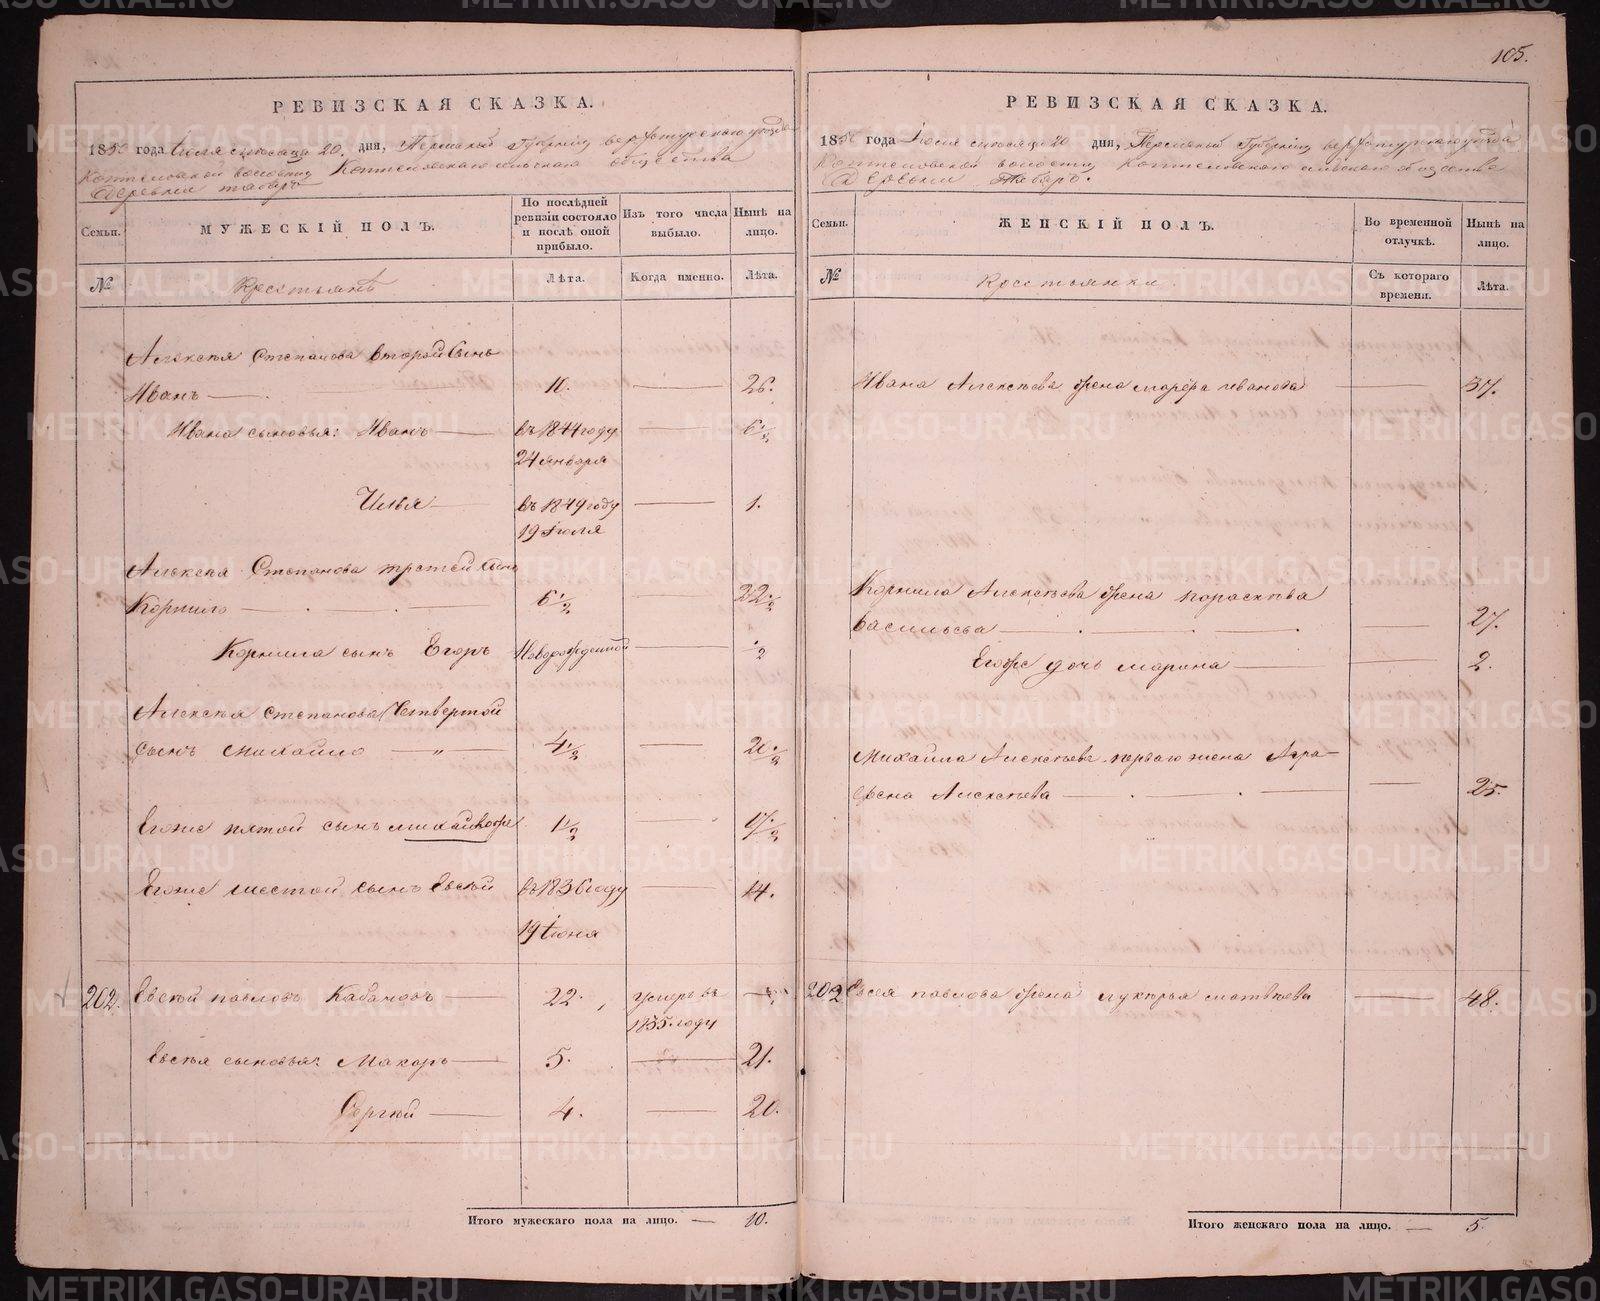 105.
РЕВИЗСКАЯ СКАЗКА.
1850 года Июля месяца 20. дня, Пермской Губернии Верхотурскаго уезда
Коптеловской волости Коптеловскаго сельскаго общества
деревни
Семьи.
МУЖЕСКІЙ ПОЛЪ.
По послѣдней ревизіи состояло и послѣ оной прибыло.
Изъ того числа выбыло.
Нынѣ на лицо.
№
Крестьянъ
Лѣта.
Когда именно.
Лѣта.
Алексѣя Степанова второй сынъ
Иванъ — 10. — 26.
Ивана сыновья: Иванъ — въ 1844 году — 6 1/2
24 января
Илья — въ 1849 году — 1.
19 Іюля
Алексѣя Степанова третей сынъ
Корнило — 6 1/2 — 22 1/2
Корнила сынъ Егоръ Новорожденной — 1/2
Алексѣя Степанова Четвертой
сынъ Михайло — " — 4 1/2 — 20 1/2
Егоже пятой сынъ Михайло же 1 1/2 — 17 1/2
Егоже шестой сынъ Евсѣй въ 1836 году — 14.
19 Іюня
202. Евсѣй Павловъ Кабановъ — 22. умеръ въ —
1835. году
Евсѣя сыновья: Макаръ — 5. — 21.
Сергѣй — 4. — 20.
Итого мужескаго пола на лицо. — 10.
РЕВИЗСКАЯ СКАЗКА.
1850 года Іюля месяца 20 дня, Пермской Губернии Верхотурскаго уезда
Коптеловской волости Коптеловскаго сельскаго общества
Деревни
Семьи.
ЖЕНСКІЙ ПОЛЪ.
Во временной отлучкѣ.
Нынѣ на лицо.
№
Крестьянки
Съ котораго времени.
Лѣта.
Ивана Алексѣева жена Марфа Иванова — 37.
Корнила Алексѣева жена Параскѣва
Васильева — 27.
Егоже дочь Марина — 2.
Михайла Алексѣева перваго жена Агра-
фена Алексѣева — 25.
202 Евсея Павлова жена Лукерья Матвѣева — 48.
Итого женскаго пола на лицо. — 5.
METRIKI.GASO-URAL.RU